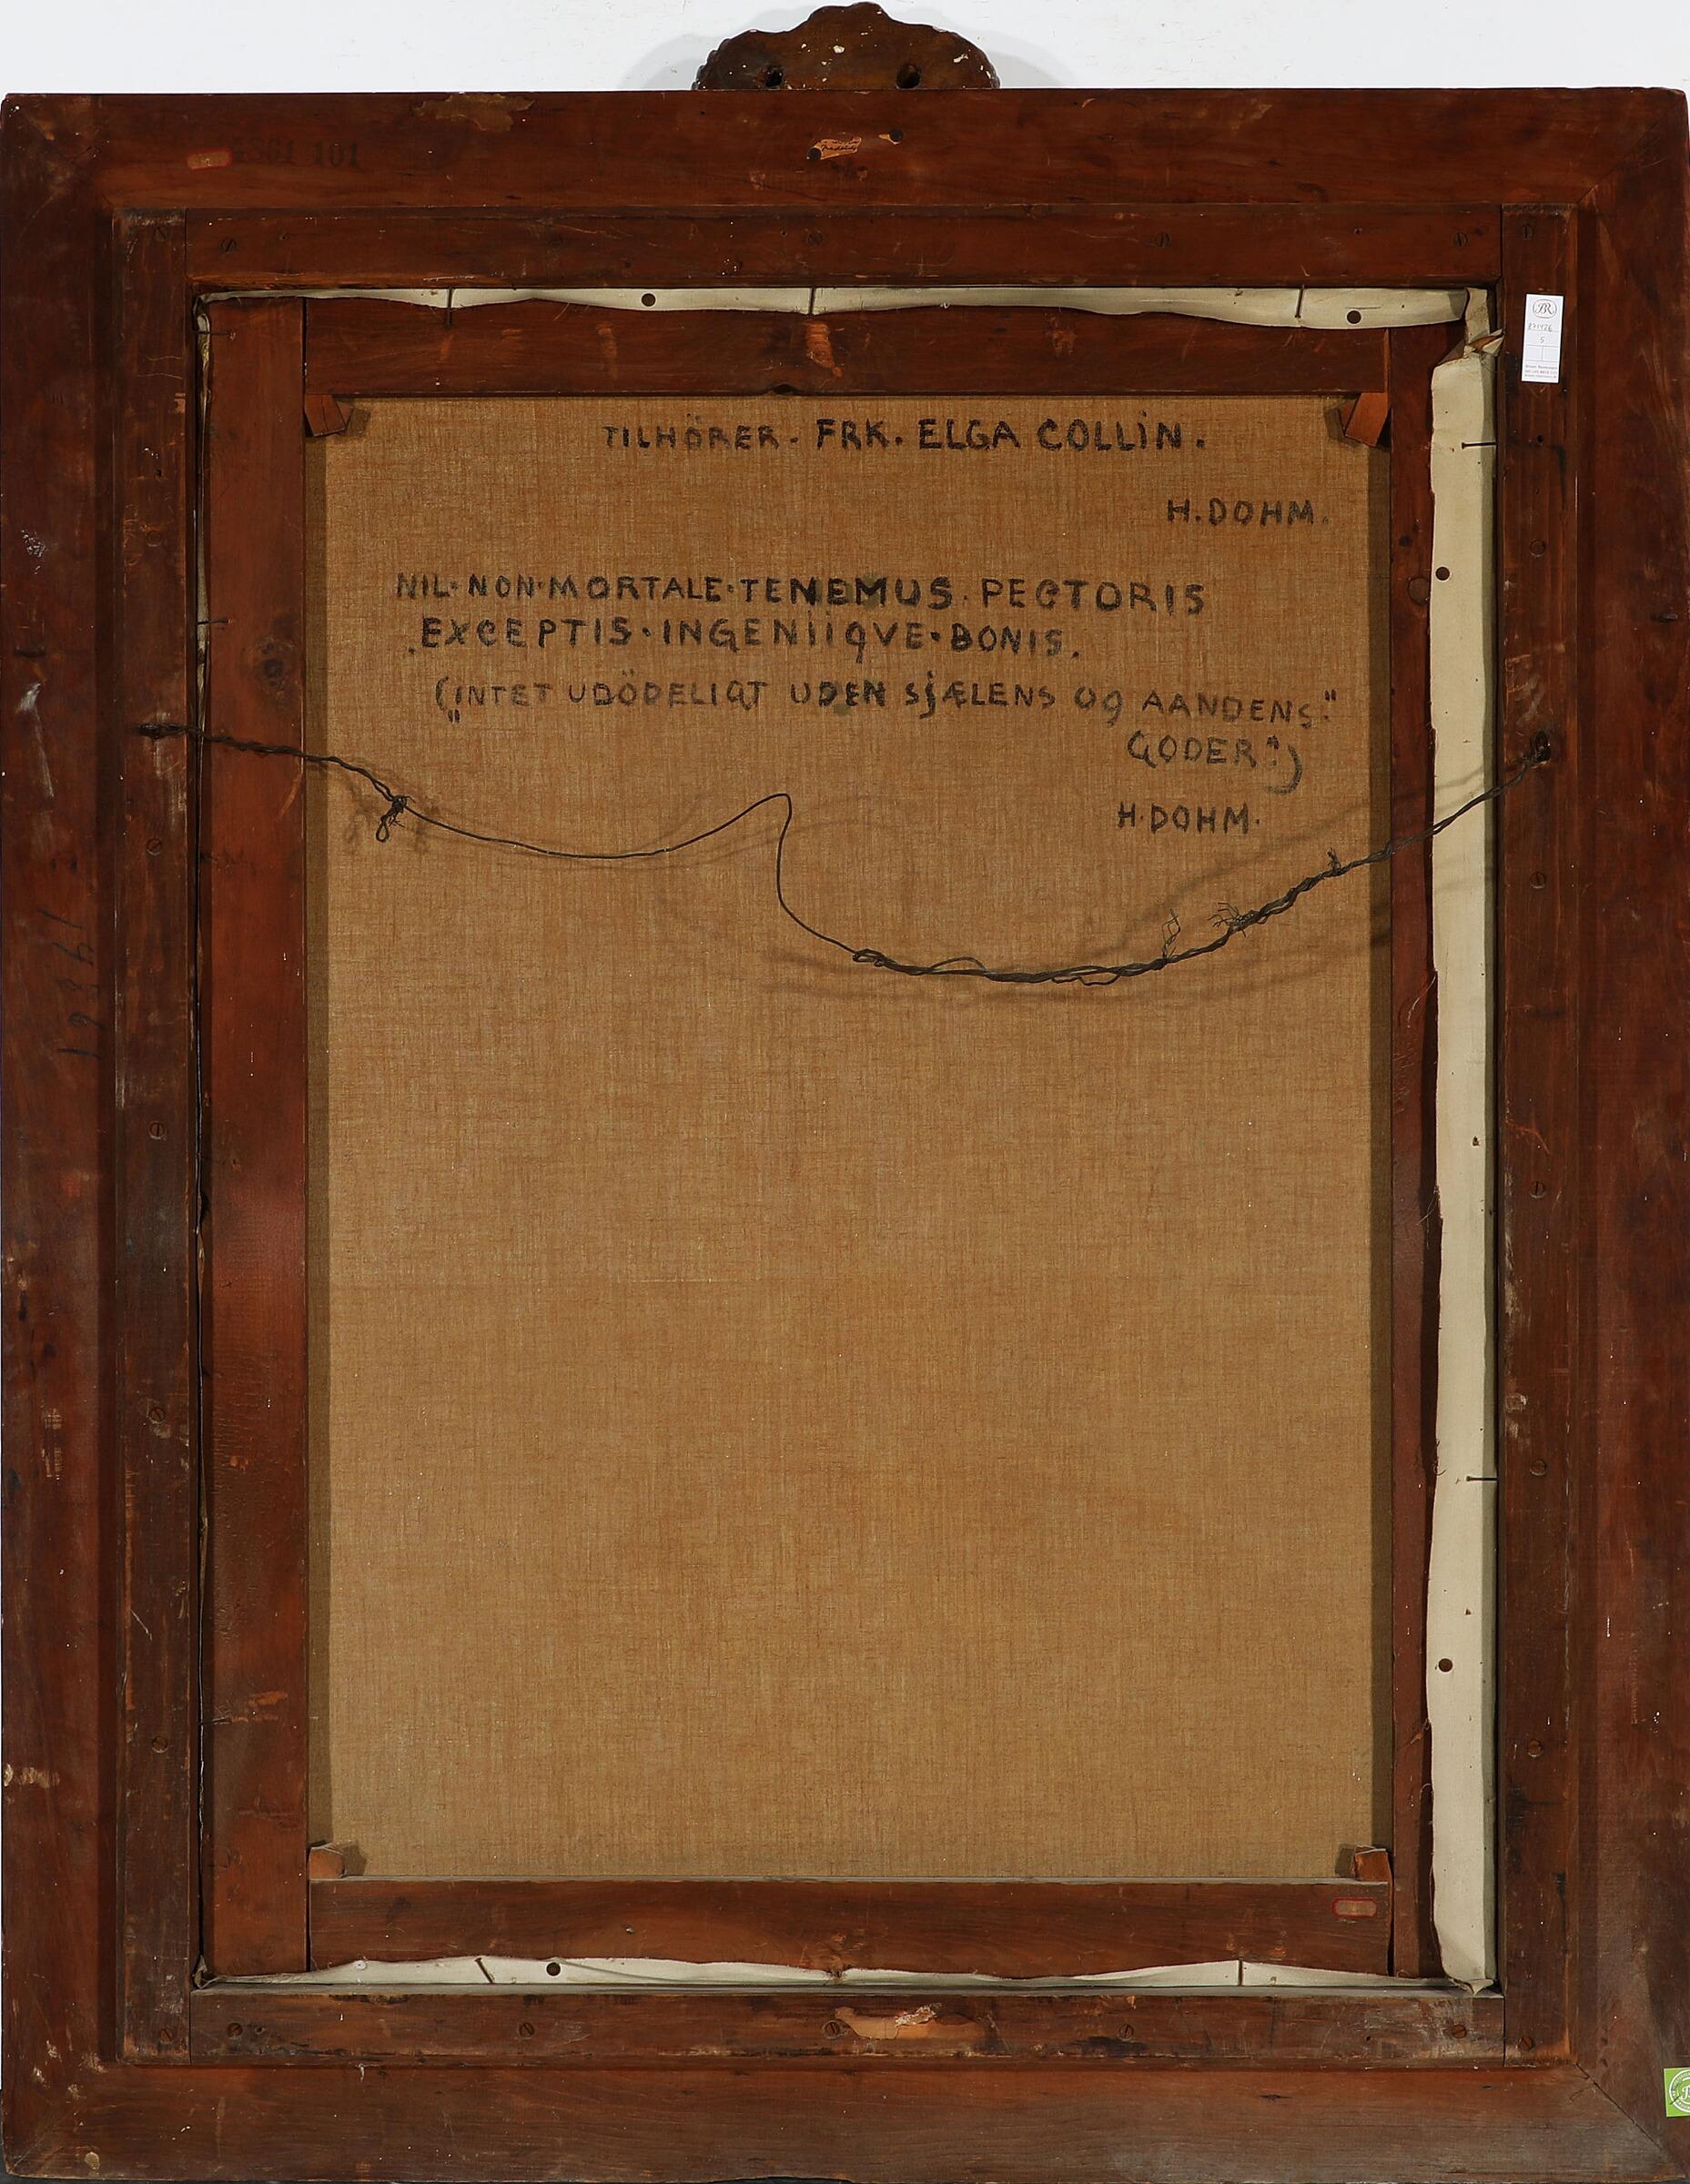 101
TILHÖRER. FRK. ELGA COLLIN.
H. DOHM.
NIL·NON·MORTALE·TENEMUS·PECTORIS
EXCEPTIS·INGENIIQVE·BONIS.
("INTET UDÖDELIGT UDEN SJÆLENS OG AANDENS:"
GODER")
H·DOHM.